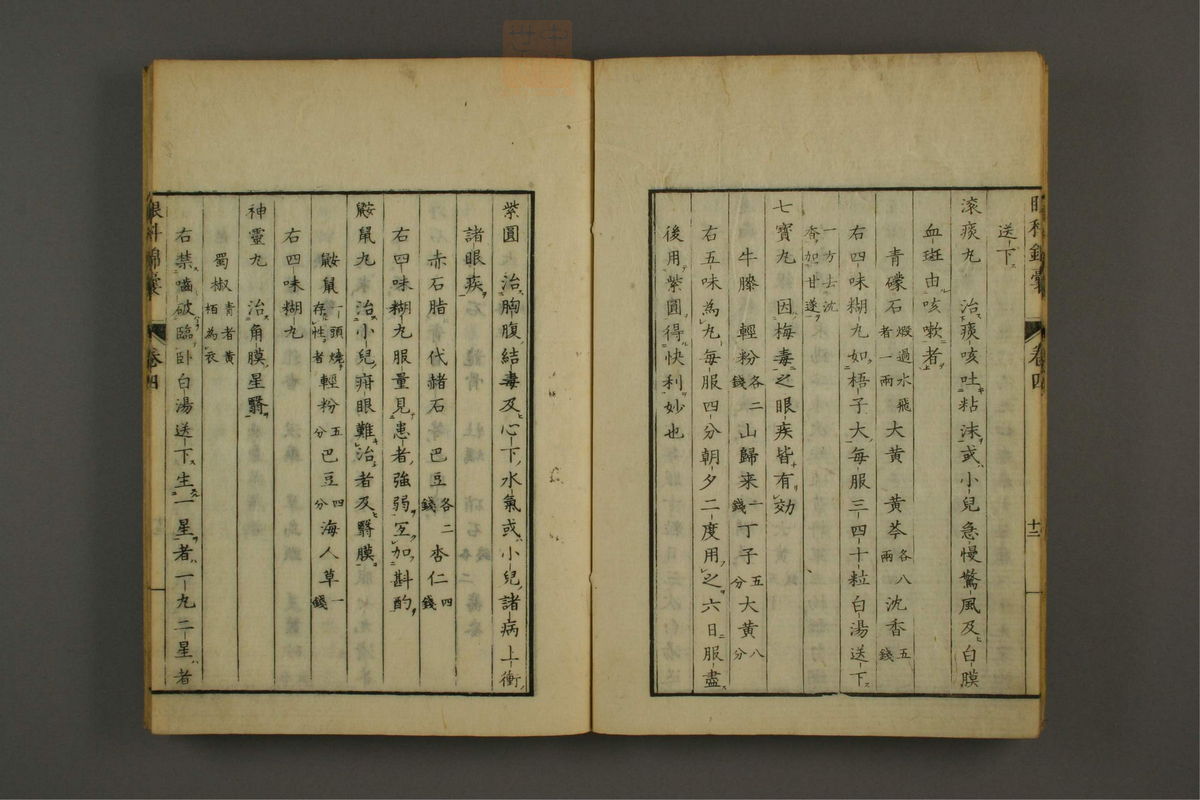 眼科錦囊 卷四 十三
送下
滾痰丸 治痰咳吐粘沫或小兒急慢驚風及白膜
血斑由咳嗽者
青礞石煅過水飛者一兩大黃 黃芩各八兩沈香五錢
右四味糊丸如梧子大每服三四十粒白湯送下
一方去沈香加甘遂
七寶丸 因梅毒之眼疾皆有効
牛膝 輕粉各二錢山歸來一錢丁子五分大黃八分
右五味為丸每服四分朝夕二度用之六日服盡
後用紫圓得快利妙也
紫圓 治胸腹結毒及心下水氣或小兒諸病上衝
諸眼疾
赤石脂 代赭石 巴豆各二錢杏仁四錢
右四味糊丸服量見患者強弱互加斟酌
鼹鼠丸 治小兒疳眼難治者及翳膜
鼹鼠一頭燒存性者輕粉五分巴豆四分海人草一錢
右四味糊丸
神靈丸 治角膜星翳
蜀椒青者黃栢為衣
右禁嚙破臨臥白湯送下生一星者一丸二星者
眼科錦囊 卷四